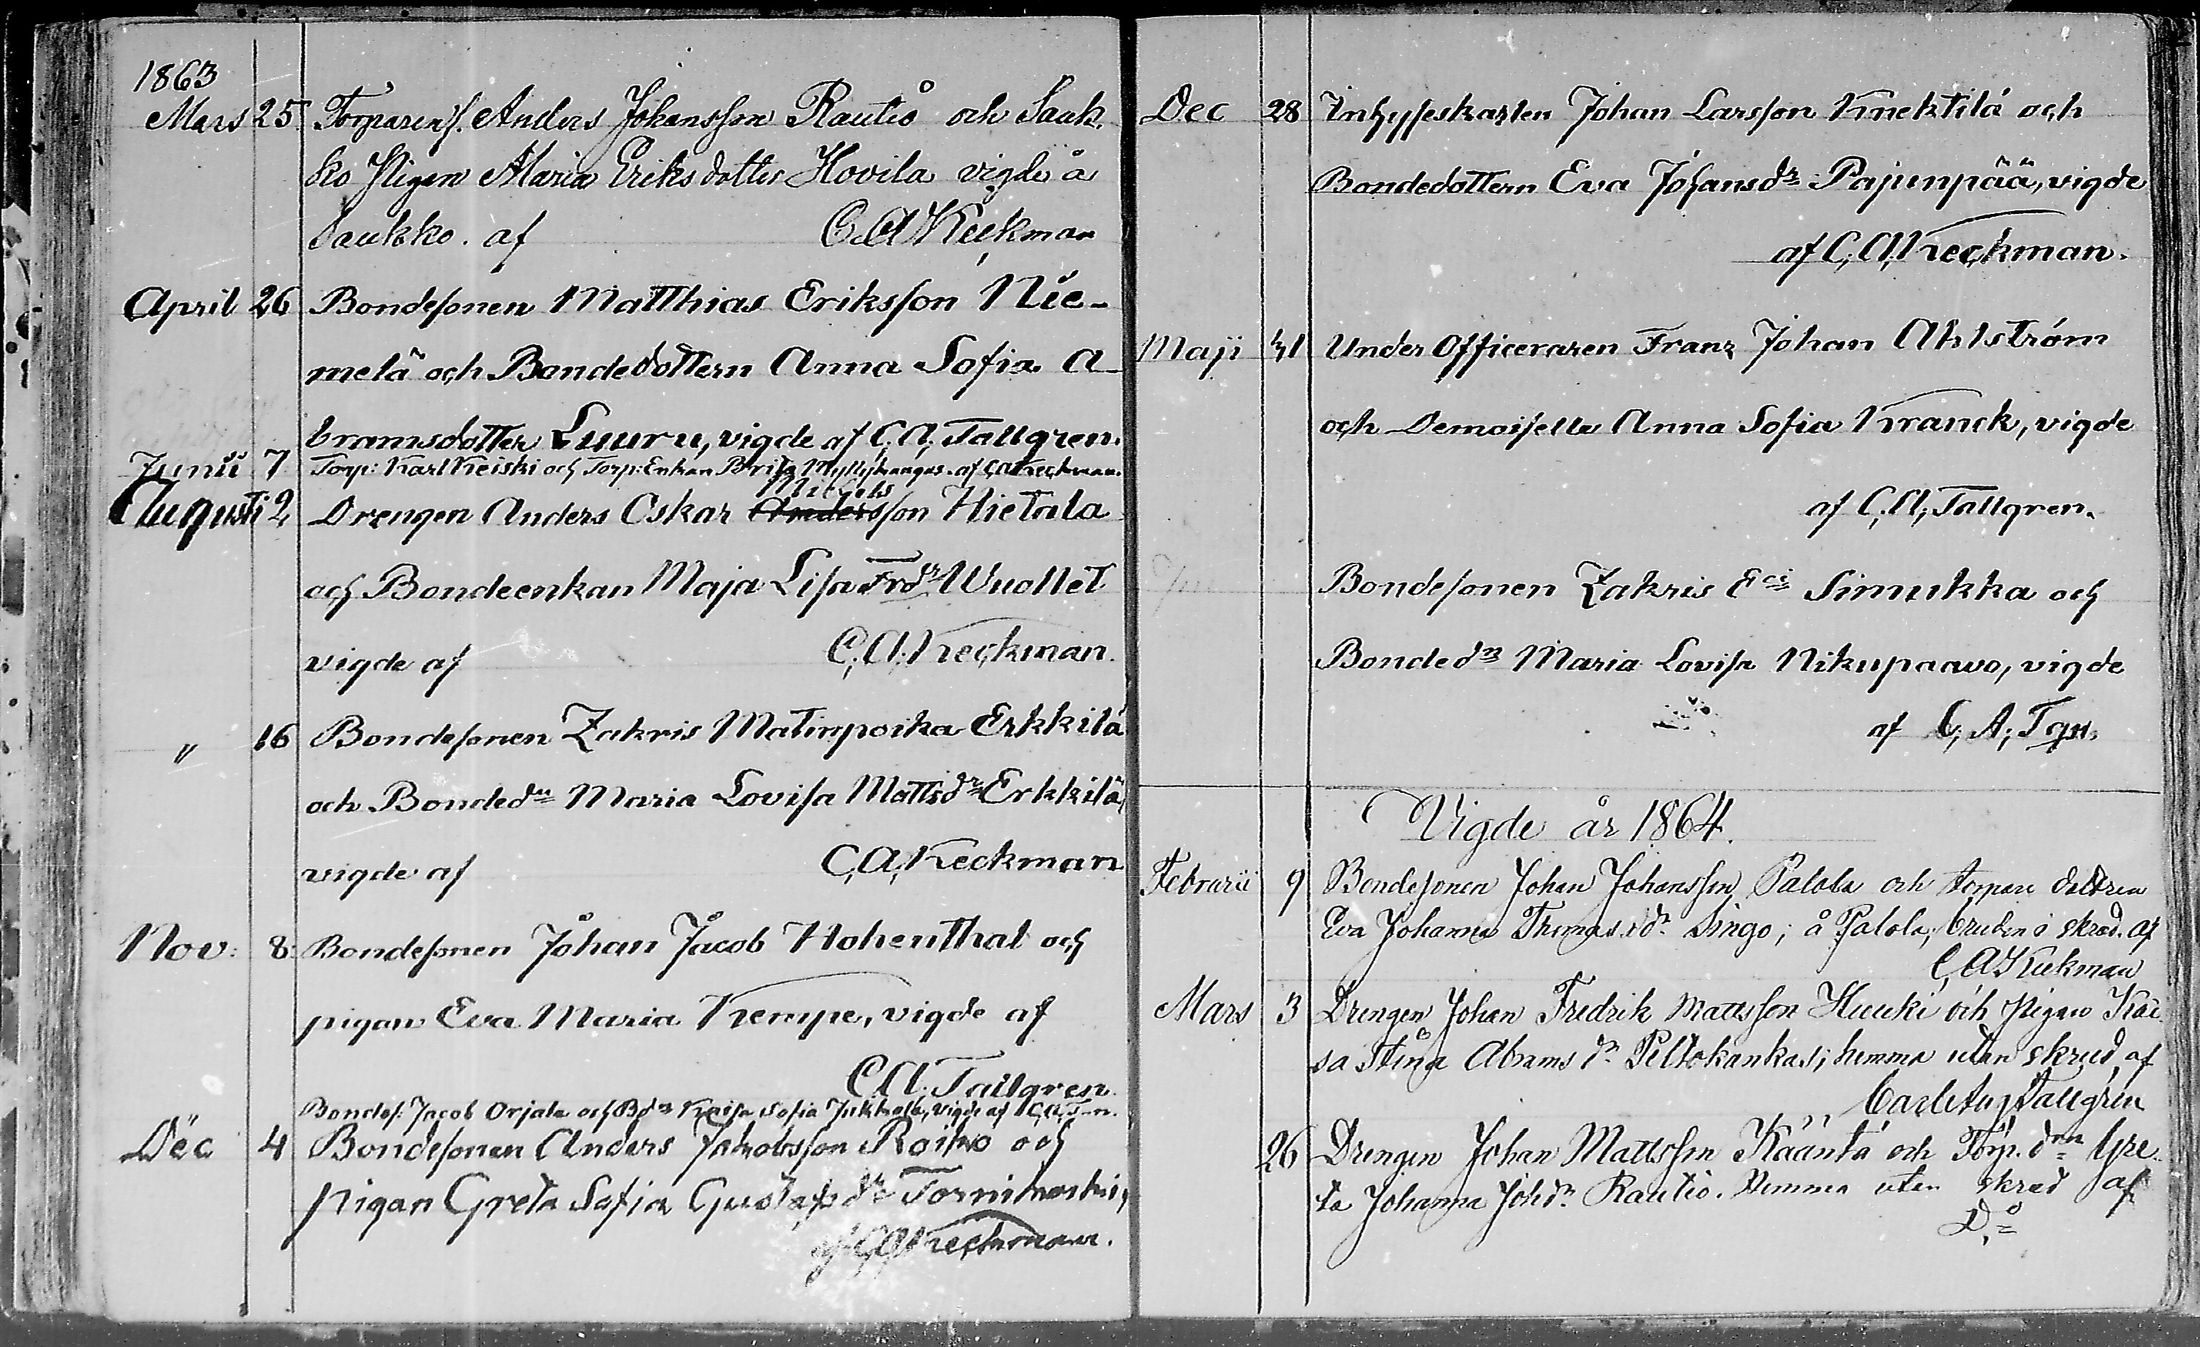 1863
Mars 25 Torparens. Anders Johansson Rautio och Sauk-
ko Pigan Maria Eriksdotter Hovila vigde å
Saukko. af C. A Keckman
April 26 Bondesonen Matthias Eriksson Nie-
melä och Bondedottern Anna Sofia A-
bramsdotter Luuru, vigde af C. A. Tallgren.
Junii 7 Torp: Karl Keiski och Torp: Enkan Brita Myllykangas. af C A Keckman.
Augusti 2 Drengen Anders Oskar Michelsson Hietala
och Bondeenkan Maja Lisa Frdr Wuollet
vigde af C. A. Keckman.
" 16 Bondesonen Zakris Matinpoika Erkkilä
och Bondedn Maria Lovisa Mattsdr Erkkilä,
vigde af C. A. Keckman
Nov: 8 Bondesonen Johan Jacob Hohenthal och
pigan Eva Maria Kempe, vigde af
C. A. Tallgren.
Bondes: Jacob Orjala och Bdn Kaisa Sofia vigde af C. A. T-n.
Dec 4 Bondesonen Anders Jakobsson Roiko och
pigan Greta Sofia Gustafsdr Tornikoski,
af C A Keckman.
Dec 28 Inhyseskarlen Johan Larsson Knektilä och
Bondedottern Eva Johansdr Pajunpää, vigde
af C. A. Keckman.
Maji 31 Under Officeraren Franz Johan Ahlström
och Demoiselle Anna Sofia Kranck, vigde
af C. A. Tallgren.
Bondesonen Zakris Eci Simukka och
Bondedn Maria Lovisa Nikupaavo, vigde
af C. A. Tgn.
Vigde år 1864.
Februrii 9 Bondesonen Johan Johansson Palola och torpare dottren
Eva Johanna Thomasdr Singo; å Palola, bruden i skrud. af
C A Keckman
Mars 3 Drengen Johan Fredrik Mattsson Huuki och Pigan Kai-
sa Stina Abramsdr Peltokankas; hemma utan skrud, af
Carl Aug Tallgren
26 Drengen Johan Mattsson Kääntä och Torp. drn Gre-
ta Johanna Johdr Rautio. Hemma utan skrud af
Do